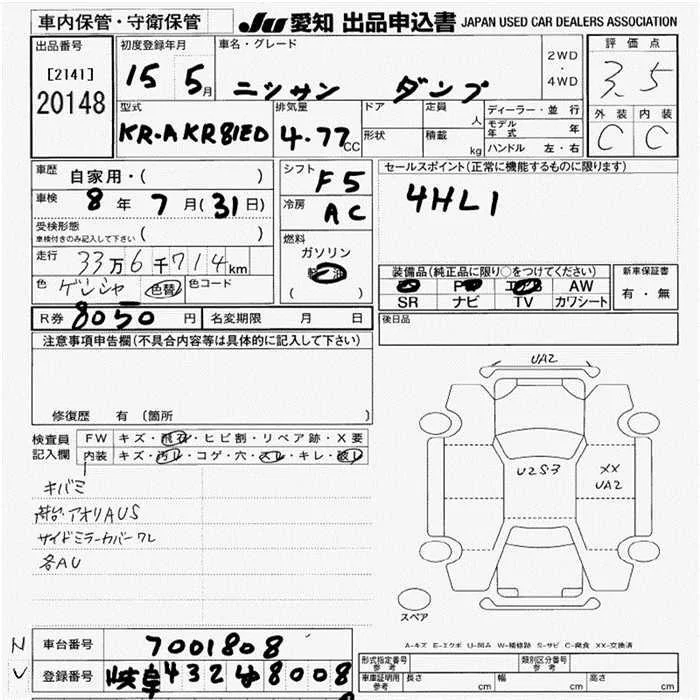 車内保管・守衛保管
JU 愛知 出品申込書 JAPAN USED CAR DEALERS ASSOCIATION
出品番号
[2141]
20148
初度登録年月
15 5月
車名・グレード
ニッサン ダンプ
2WD
・
4WD
評価点
3.5
外装 内装
C C
型式
KR-AKR81ED
排気量
4.77CC
ドア
形状
定員 人
積載 kg
ディーラー・並行
モデル年式 年
ハンドル 左・右
車歴 自家用・( )
車検 8年7月(31日)
受検形態
車検付きのみ記入して下さい ( )
走行 33万6千714km
色
色替
色コード
シフト F5
冷房 AC
燃料
ガソリン
軽油
( )
セールスポイント(正常に機能するものに限ります)
4HL1
装備品(純正品に限り○をつけてください)
AW
SR ナビ TV カワシート
新車保証書
有・無
R券 8050円
名変期限 月 日
後日品
注意事項申告欄(不具合内容等は具体的に記入して下さい)
修復歴 有 (箇所 )
検査員記入欄
FW キズ・飛石・ヒビ割・リペア跡・X要
内装 キズ・汚レ・コゲ・穴・スレ・キレ・破レ
キバミ
荷台・アオリAUS
サイドミラーカバーワレ
各AU
UA2
U2S3
XX
UA2
スペア
A-キズ E-エクボ U-凹み W-補修跡 S-サビ C-腐食 XX-交換済
N
U
車台番号 7001808
登録番号 岐阜 432 8008
形式指定番号
参考
類別区分番号
参考
車庫証明用
参考
長さ cm 幅 cm 高さ cm